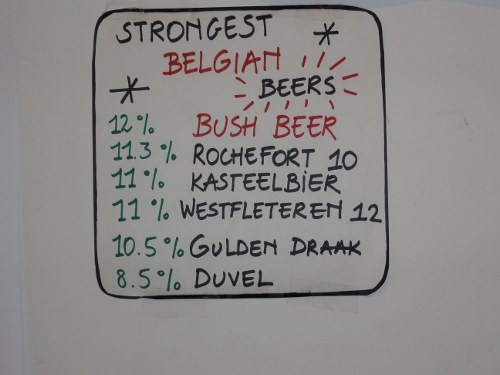 STRONGEST
BELGIAN
BEERS
12% BUSH BEER
11.3% ROCHEFORT 10
11% KASTEELBIER
11% WESTFLETEREN 12
10.5% GULDEN DRAAK
8.5% DUVEL